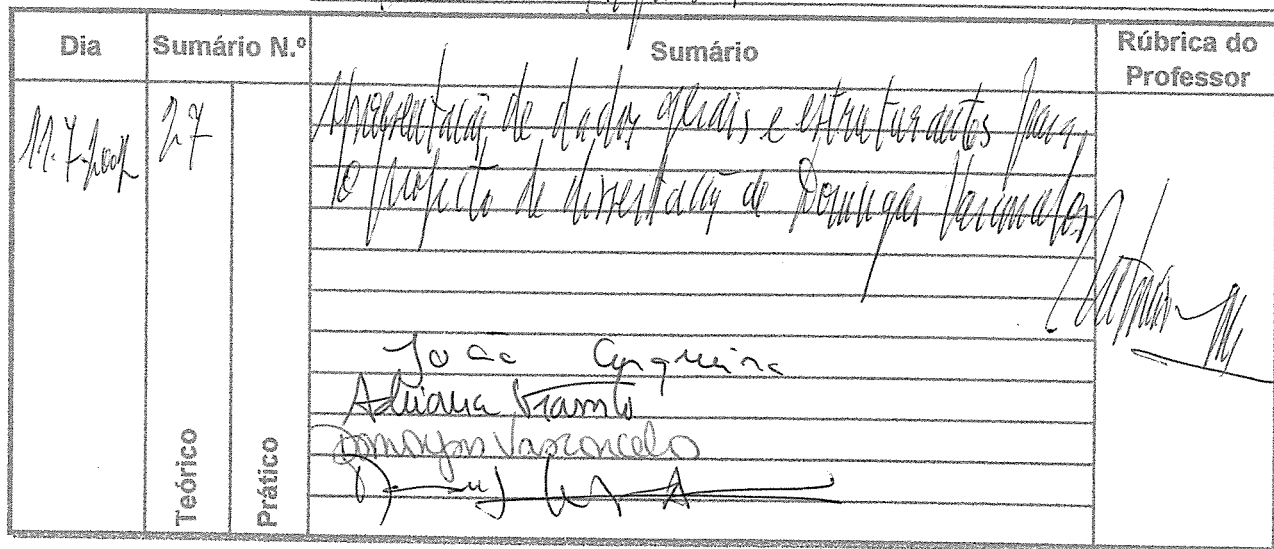 Dia Sumário N.º Sumário Rúbrica do Professor
11.7.2007 27 Apresentação de dados gerais e estruturantes para
o projecto de dissertação de Domingos Vasconcelos
João Cerqueira
Adriana
Domingos Vasconcelo
Teórico
Prático